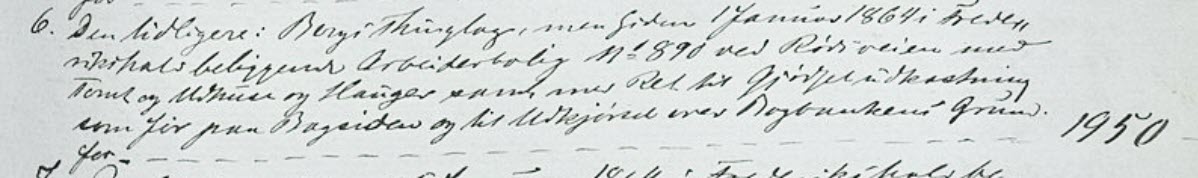 for
6. Den tidligere i Bergs Thinglag, men siden 1 Januar 1864 i Frede-
rikshald beliggende Arbeiderbolig No 890 ved Rødsveien med
Tomt og Udhuse og Hauger samt med Ret til Gjødseludkastning
som før paa Bagsiden og til Udkjørsel over Bogbankens Grund.
for 1950
7. 1864 i Frederikshald be